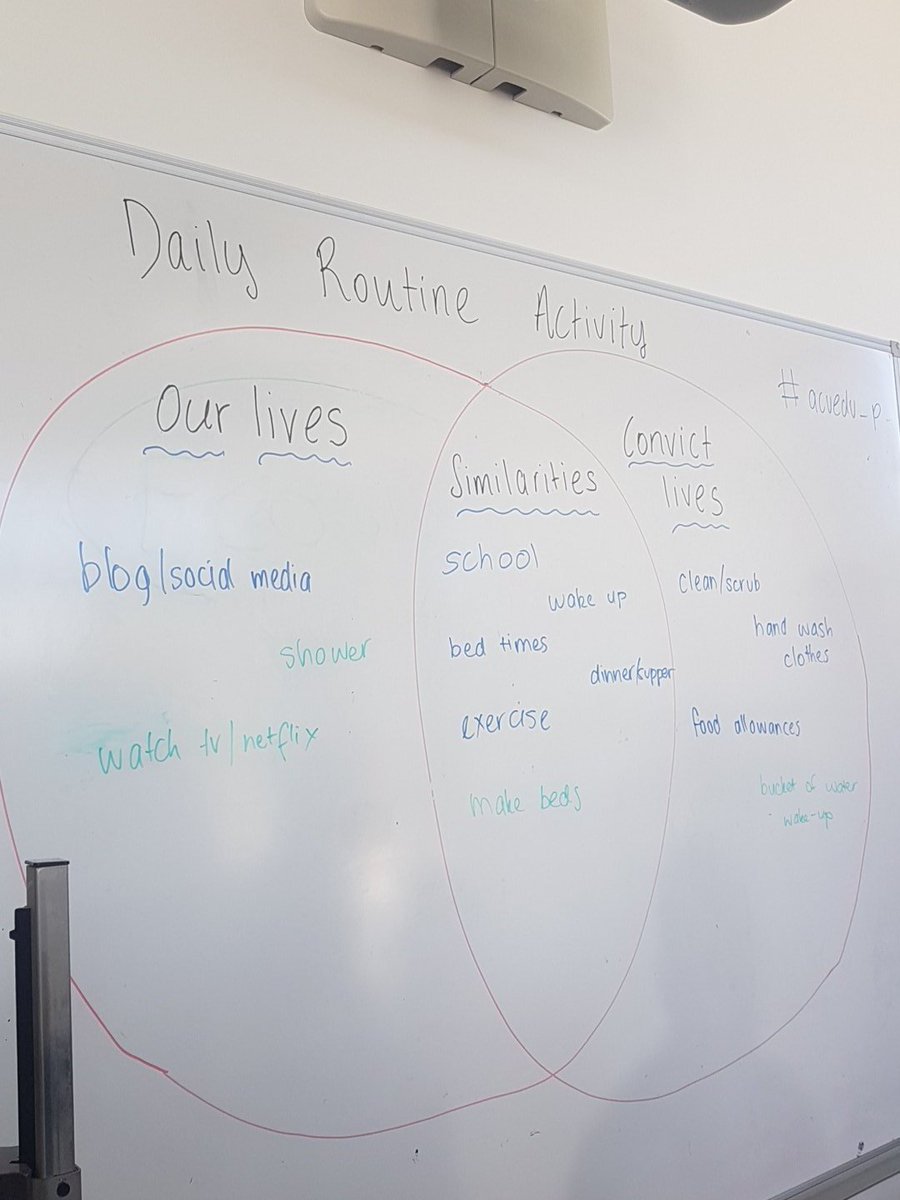 Daily Routine Activity
# acuedu_p_
Our lives
blog/social media
shower
watch tv/netflix
Similarities
school
wake up
bed times
dinner/supper
exercise
make beds
Convict
lives
clean/scrub
hand wash
clothes
food allowances
bucket of water
wake-up